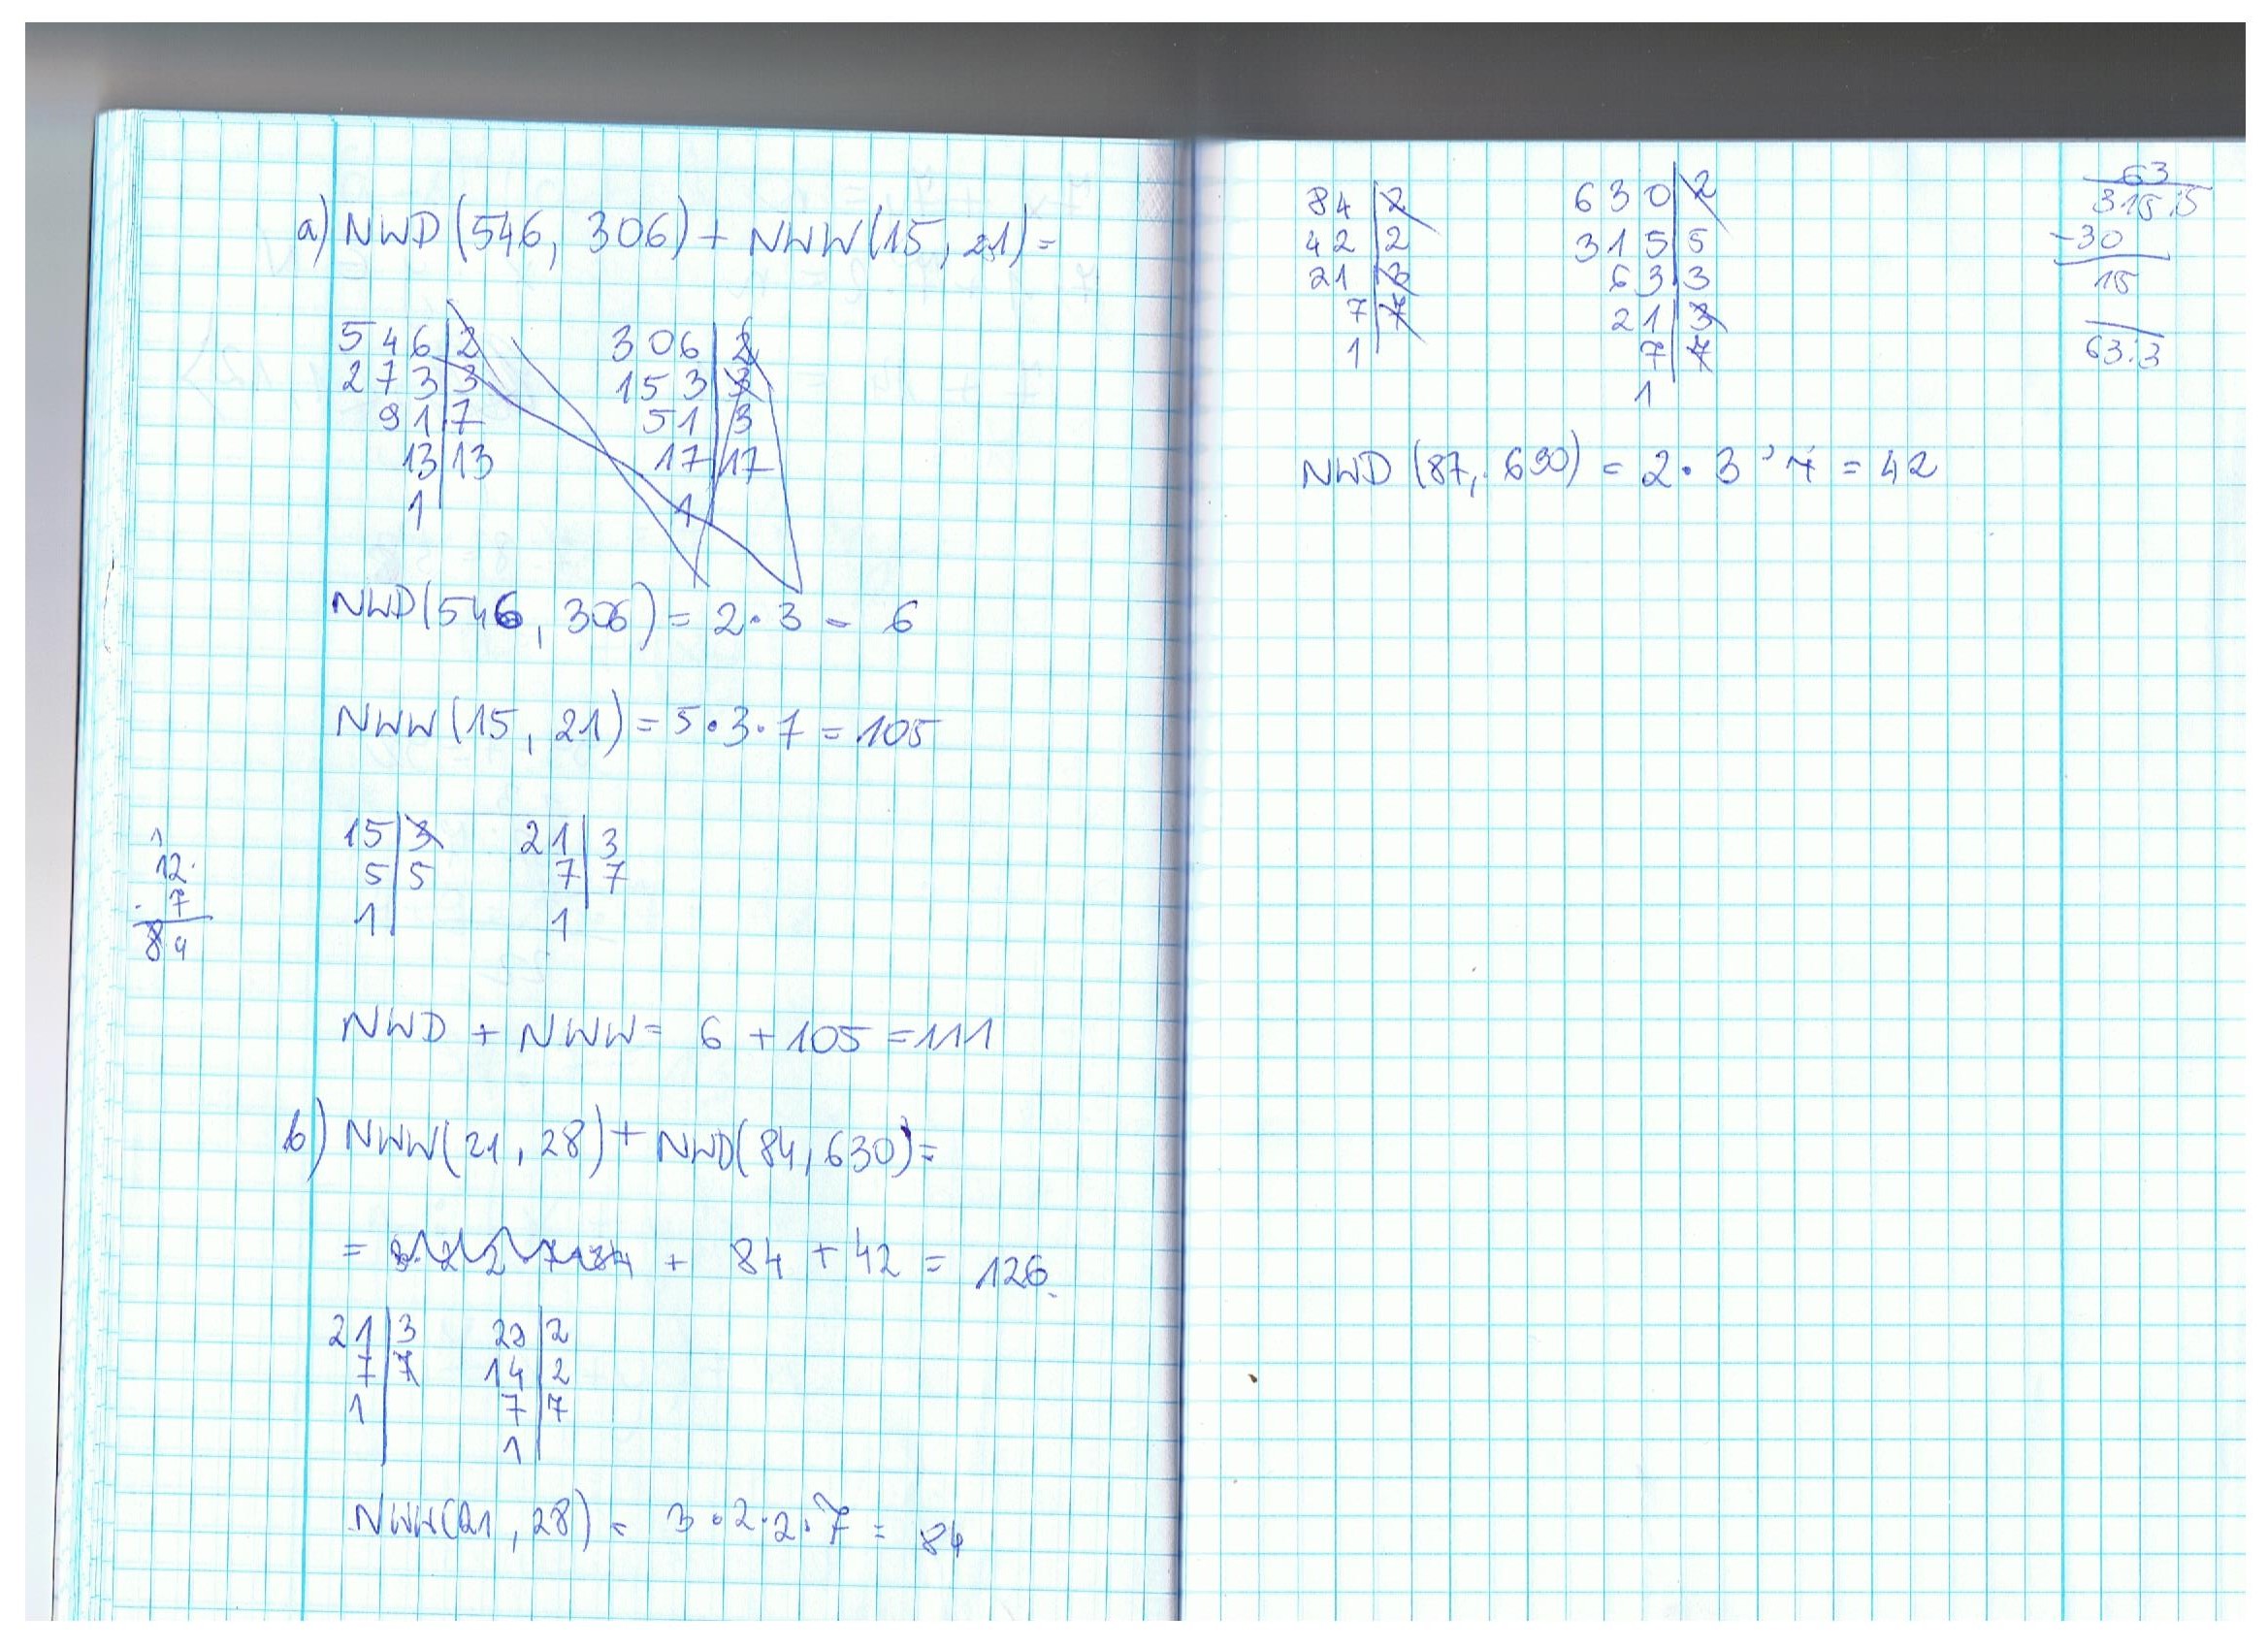 a) NWD (546, 306) + NWW (15, 21) =
546 | 2   306 | 2
273 | 3   153 | 3
91 | 7   51 | 3
13 | 13   17 | 17
1   1
NWD (546, 306) = 2 · 3 = 6
NWW (15, 21) = 5 · 3 · 7 = 105
15 | 3   21 | 3
5 | 5   7 | 7
1   1
12
· 7
84
NWD + NWW = 6 + 105 = 111
b) NWW (21, 28) + NWD (84, 630) =
= + 84 + 42 = 126
21 | 3   28 | 2
7 | 7   14 | 2
1   7 | 7
1
NWW (21, 28) = 3 · 2 · 2 · 7 = 84
84 | 2   630 | 2
42 | 2   315 | 5
21 | 3   63 | 3
7 | 7   21 | 3
1   7 | 7
1
63
315 : 5
-30
15
63 : 3
NWD (87, 630) = 2 · 3 · 7 = 42